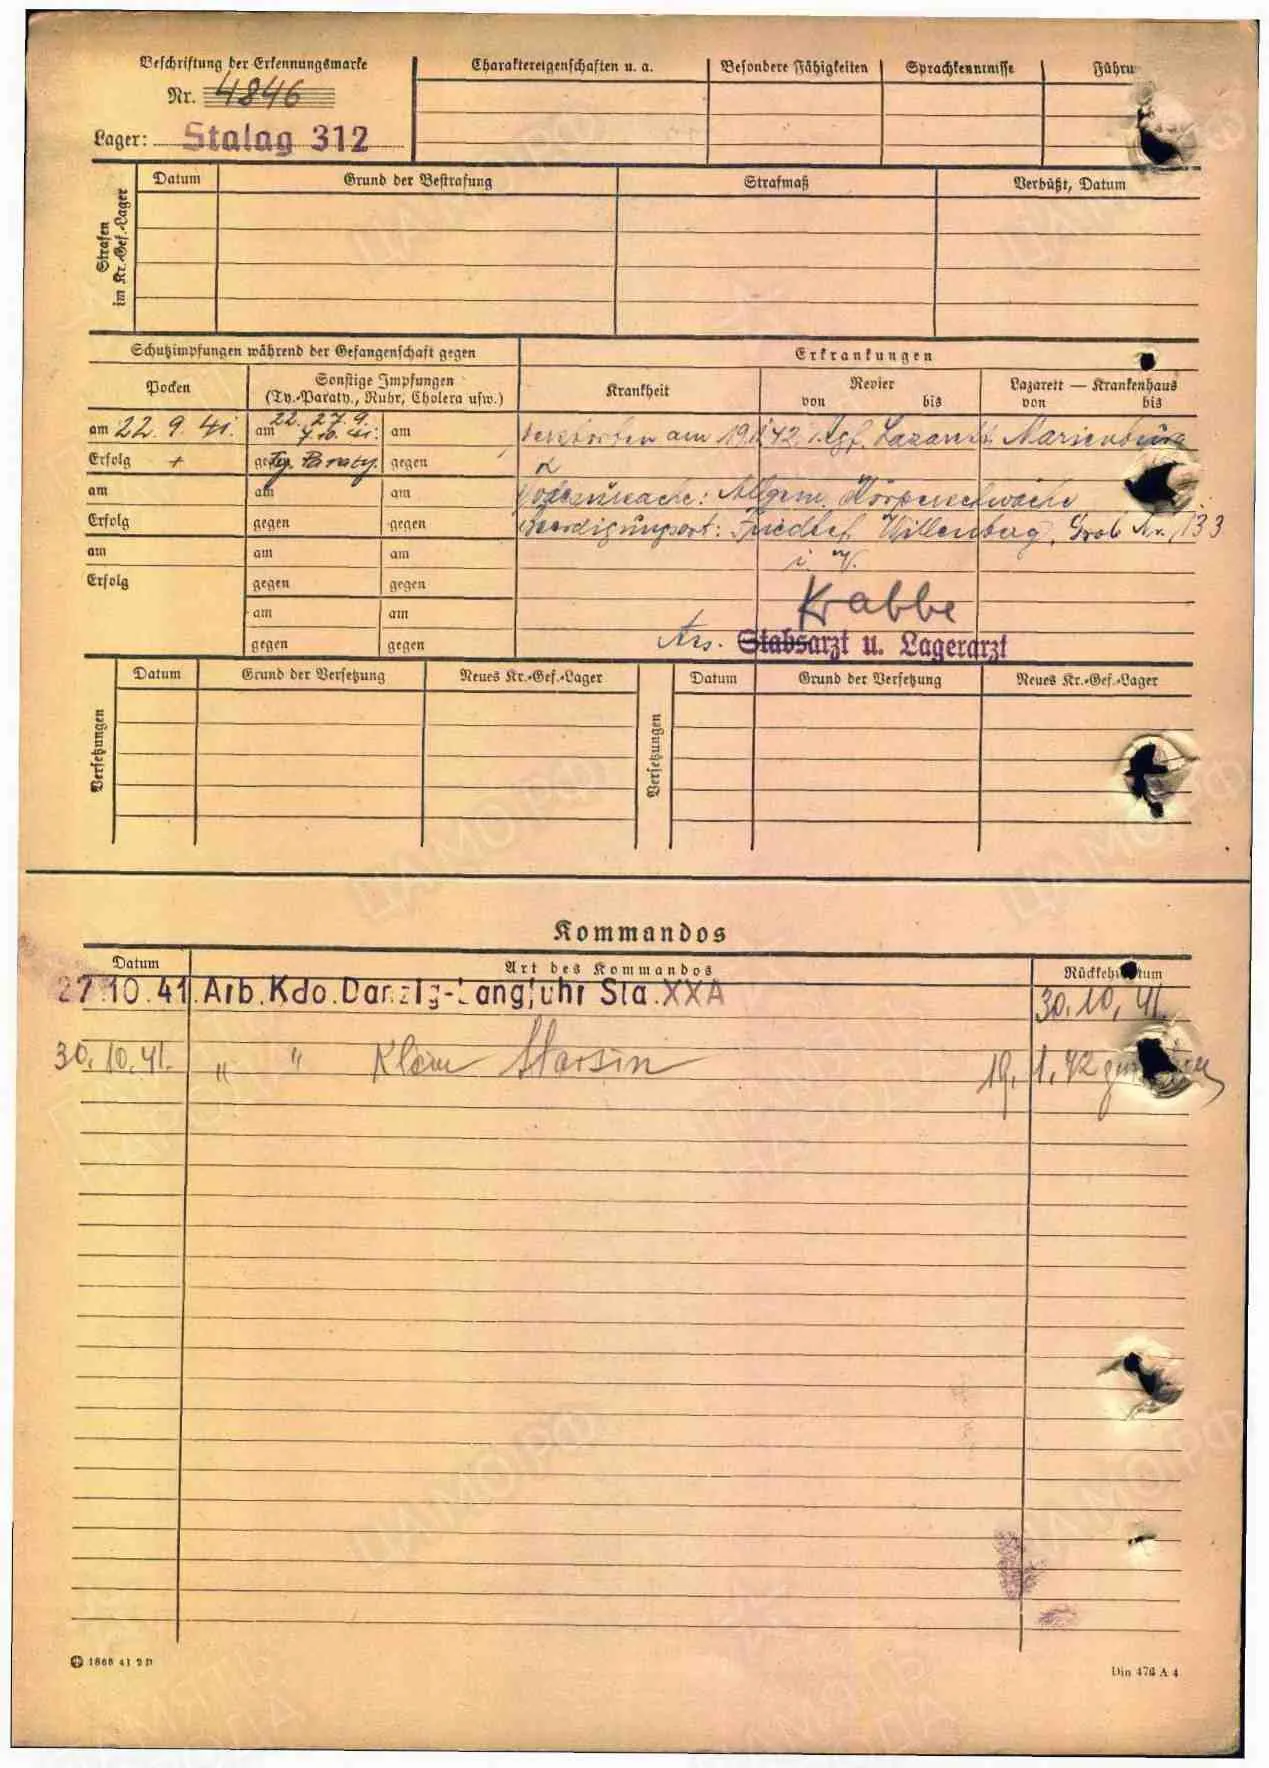 Beschriftung der Erkennungsmarke
Nr. 4846
Lager: Stalag 312
Charaktereigenschaften u. a. Besondere Fähigkeiten Sprachkenntnisse Führu
Strafen im Kr.-Gef.-Lager
Datum Grund der Bestrafung Strafmaß Verbüßt, Datum
Schutzimpfungen während der Gefangenschaft gegen Erkrankungen
Pocken Sonstige Impfungen (Ty.-Paraty., Ruhr, Cholera usw.) Krankheit Revier Lazarett — Krankenhaus
von bis von bis
am 22. 9. 41. am 22. 27. 9. 7. 10. 41. am Verstorben am 19.1.42 Kgf. Lazarett Marienburg
Erfolg + gegen Ty. Paraty. gegen
am am am Todesursache: Allgem. Körperschwäche
Erfolg gegen gegen Beerdigungsort: Friedhof Willenberg, Grab Nr. 133
am am am i. V.
Erfolg gegen gegen Krabbe
am am
gegen gegen Ass. Stabsarzt u. Lagerarzt
Versetzungen Datum Grund der Versetzung Neues Kr.-Gef.-Lager Versetzungen Datum Grund der Versetzung Neues Kr.-Gef.-Lager
Kommandos
Datum Art des Kommandos Rückkehr tum
27.10.41. Arb.Kdo.Danzig-Langfuhr Sta.XXA 30. 10. 41.
30. 10. 41. " " Klein 19. 1. 42
1868 41 2 D
Din 476 A 4
ЦАМО РФ
ПАМЯТЬ НАРОДА